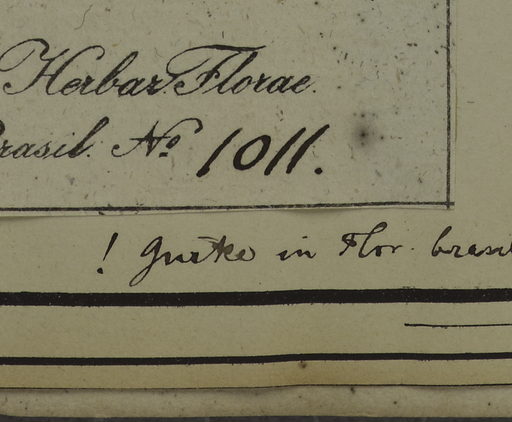 Herbar Florae
Brasil. No. 1011.
! Gürke in Flor. brasil